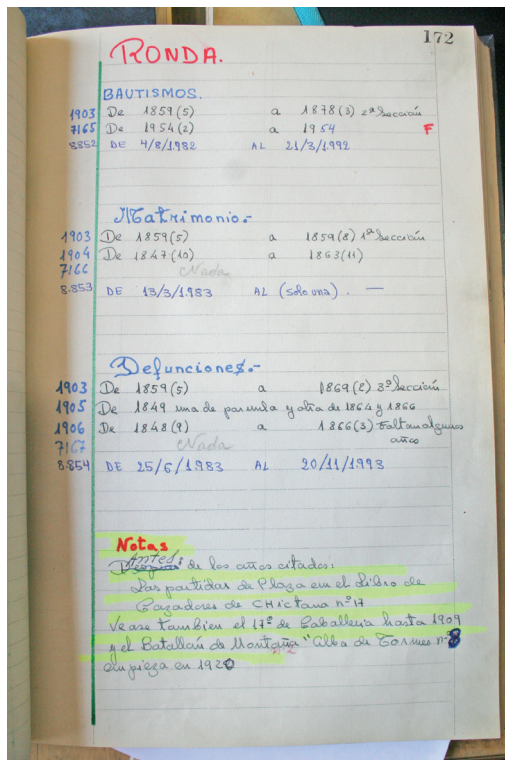 172
RONDA.
BAUTISMOS.
1903 De 1859 (5) a 1878 (3) 2ª Sección
7165 De 1954 (2) a 1954 F
8.852 DE 4/8/1982 AL 21/3/1992
Matrimonio.-
1903 De 1859 (5) a 1859 (8) 1ª Sección
1904 De 1847 (10) a 1863 (11)
7166 Nada
8.853 DE 13/3/1983 AL (solo una). —
Defunciones.-
1903 De 1859 (5) a 1869 (2) 3ª Sección
1905 De 1849 una de parvula y otra de 1864 y 1866
1906 De 1848 (9) a 1866 (3) Faltan algunos
años
7167 Nada
8.854 DE 25/6/1983 AL 20/11/1993
Notas
Antes
Después de los años citados:
Las partidas de Plaza en el Libro de
Cazadores de CHiclana nº 17
Vease tambien el 17º de Caballeria hasta 1909
y el Batallón de Montaña "Alba de Tormes nº 8
empieza en 1920